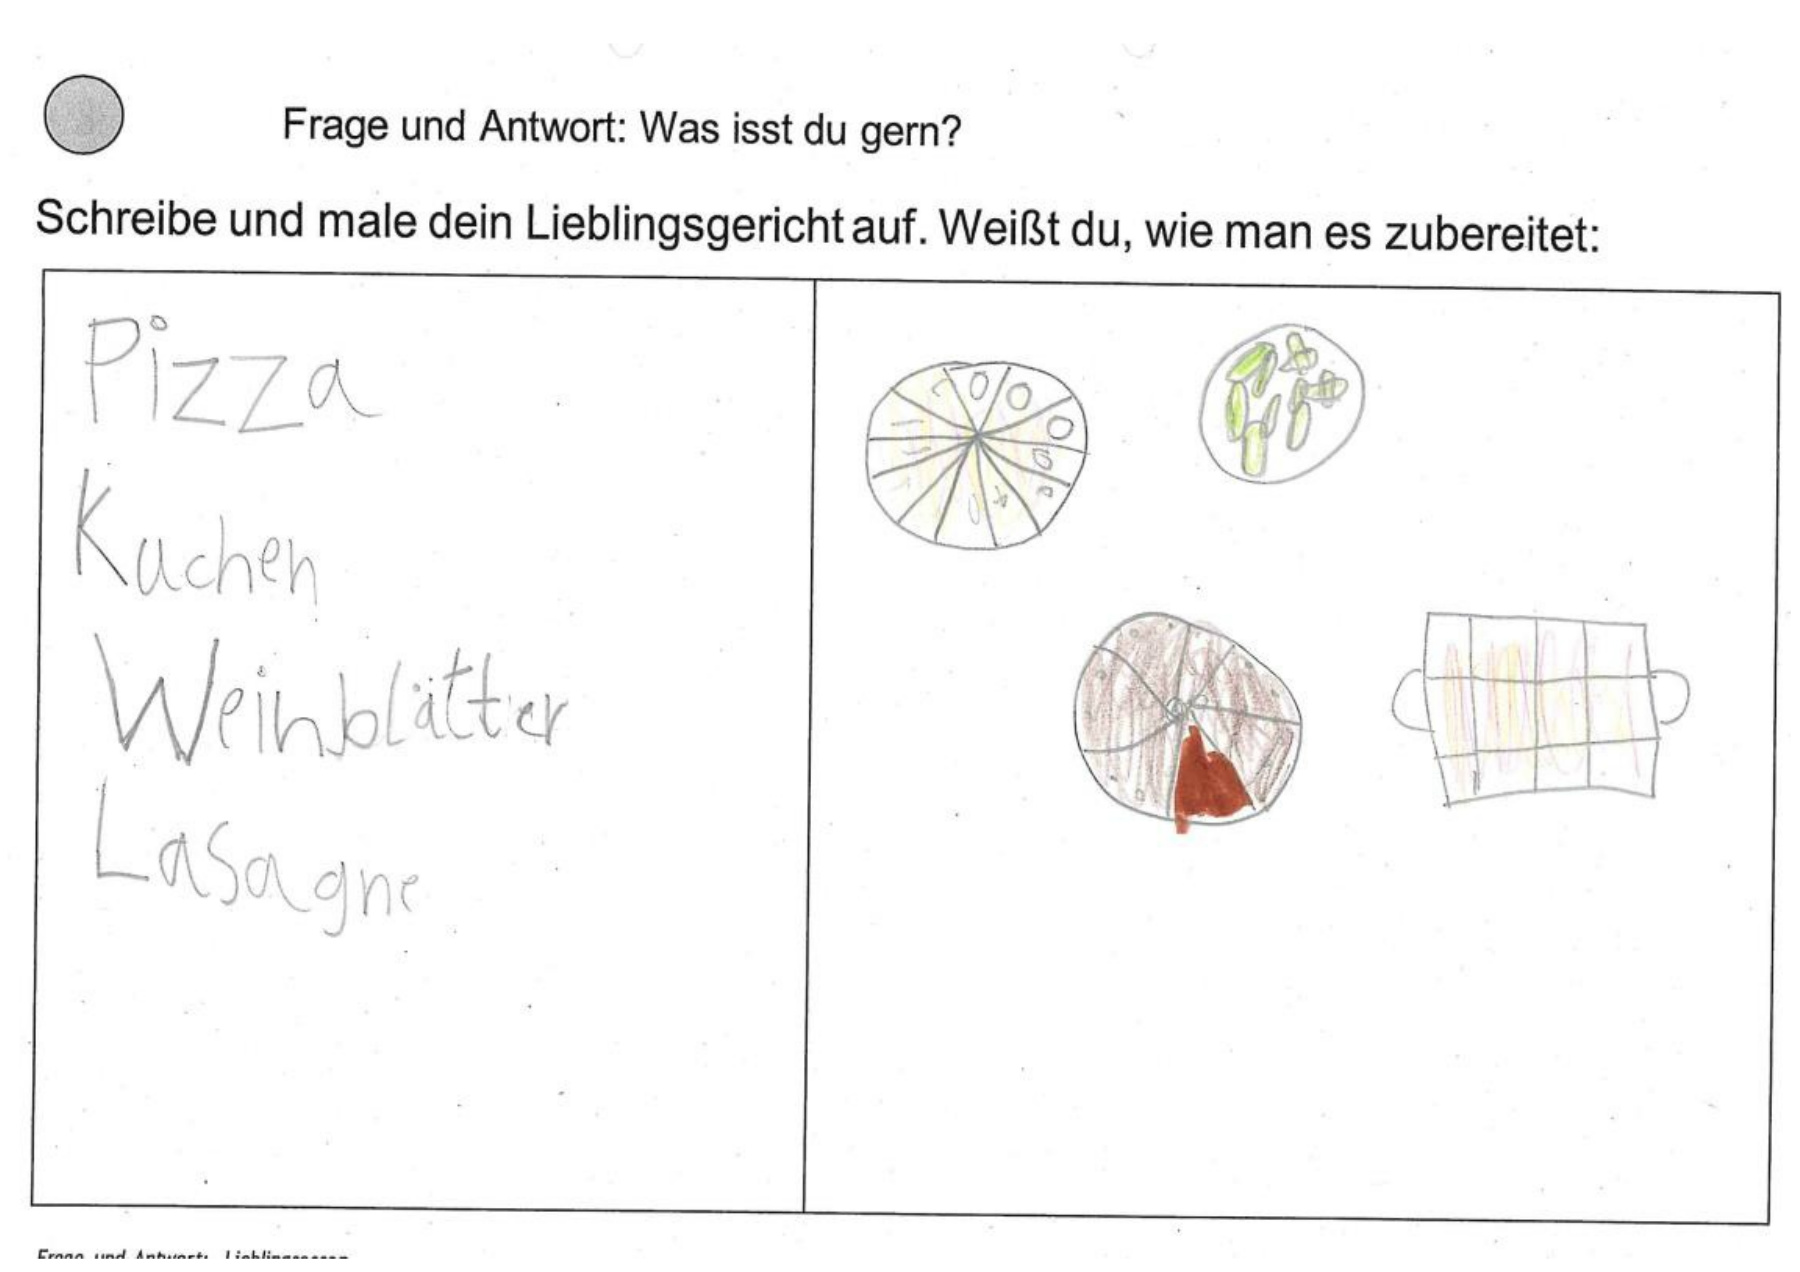 Frage und Antwort: Was isst du gern?
Schreibe und male dein Lieblingsgericht auf. Weißt du, wie man es zubereitet:
Pizza
Kuchen
Weinblätter
Lasagne
Frage und Antwort: Lieblingsessen